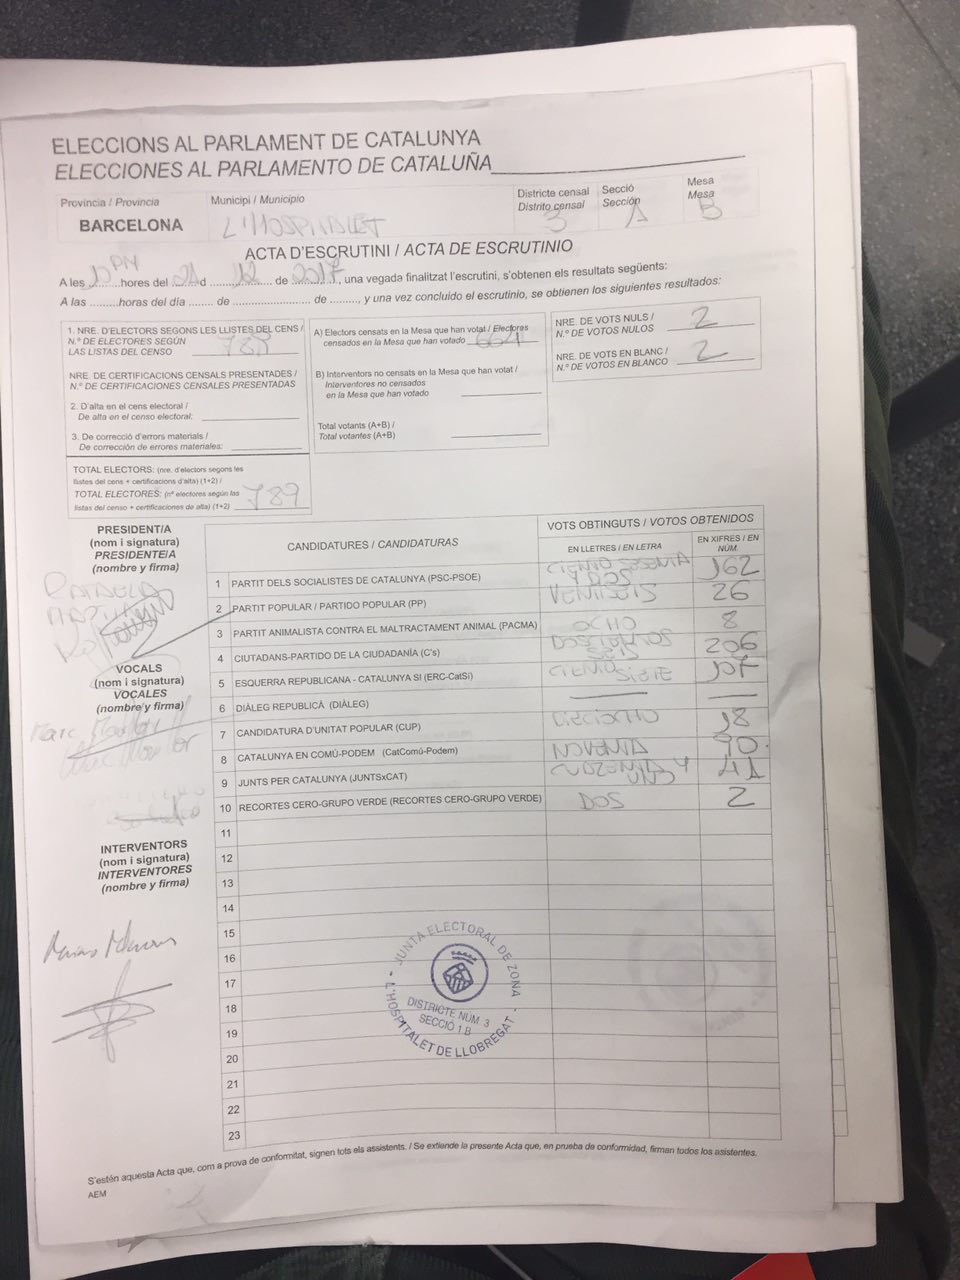 ELECCIONS AL PARLAMENT DE CATALUNYA
ELECCIONES AL PARLAMENTO DE CATALUÑA
Província / Provincia
BARCELONA
Municipi / Municipio
L'HOSPITALET
Districte censal
Distrito censal
3
Secció
Sección
1
Mesa
Mesa
B
ACTA D'ESCRUTINI / ACTA DE ESCRUTINIO
A les 10 PM hores del 21 d 12 de 2017, una vegada finalitzat l'escrutini, s'obtenen els resultats següents:
A las .........horas del día ....... de ....................... de ........, y una vez concluido el escrutinio, se obtienen los siguientes resultados:
1. NRE. D'ELECTORS SEGONS LES LLISTES DEL CENS /
N.º DE ELECTORES SEGÚN
LAS LISTAS DEL CENSO
NRE. DE CERTIFICACIONS CENSALS PRESENTADES /
N.º DE CERTIFICACIONES CENSALES PRESENTADAS
2. D'alta en el cens electoral /
De alta en el censo electoral:
3. De correcció d'errors materials /
De corrección de errores materiales:
TOTAL ELECTORS: (nre. d'electors segons les
llistes del cens + certificacions d'alta) (1+2) /
TOTAL ELECTORES: (nº electores según las
listas del censo + certificaciones de alta) (1+2) 789
A) Electors censats en la Mesa que han votat / Electores
censados en la Mesa que han votado 664
B) Interventors no censats en la Mesa que han votat /
Interventores no censados
en la Mesa que han votado
Total votants (A+B) /
Total votantes (A+B)
NRE. DE VOTS NULS /
N.º DE VOTOS NULOS 2
NRE. DE VOTS EN BLANC /
N.º DE VOTOS EN BLANCO 2
PRESIDENT/A
(nom i signatura)
PRESIDENTE/A
(nombre y firma)
VOCALS
(nom i signatura)
VOCALES
(nombre y firma)
Marc
INTERVENTORS
(nom i signatura)
INTERVENTORES
(nombre y firma)
CANDIDATURES / CANDIDATURAS
VOTS OBTINGUTS / VOTOS OBTENIDOS
EN LLETRES / EN LETRA
EN XIFRES / EN NÚM.
1 PARTIT DELS SOCIALISTES DE CATALUNYA (PSC-PSOE) CIENTO SESENTA Y DOS 162
2 PARTIT POPULAR / PARTIDO POPULAR (PP) VENTISEIS 26
3 PARTIT ANIMALISTA CONTRA EL MALTRACTAMENT ANIMAL (PACMA) OCHO 8
4 CIUTADANS-PARTIDO DE LA CIUDADANÍA (C's) DOSCIENTOS SEIS 206
5 ESQUERRA REPUBLICANA - CATALUNYA SI (ERC-CatSí) CIENTO SIETE 107
6 DIÀLEG REPUBLICÀ (DIÀLEG)
7 CANDIDATURA D'UNITAT POPULAR (CUP) DIECIOCHO 18
8 CATALUNYA EN COMÚ-PODEM (CatComú-Podem) NOVENTA 90
9 JUNTS PER CATALUNYA (JUNTSxCAT) CUARENTA Y UNO 41
10 RECORTES CERO-GRUPO VERDE (RECORTES CERO-GRUPO VERDE) DOS 2
11
12
13
14
15
16
17
18
19
20
21
22
23
JUNTA ELECTORAL DE ZONA
DISTRICTE NÚM 3
SECCIÓ 1 B
L'HOSPITALET DE LLOBREGAT
S'estén aquesta Acta que, com a prova de conformitat, signen tots els assistents. / Se extiende la presente Acta que, en prueba de conformidad, firman todos los asistentes.
AEM